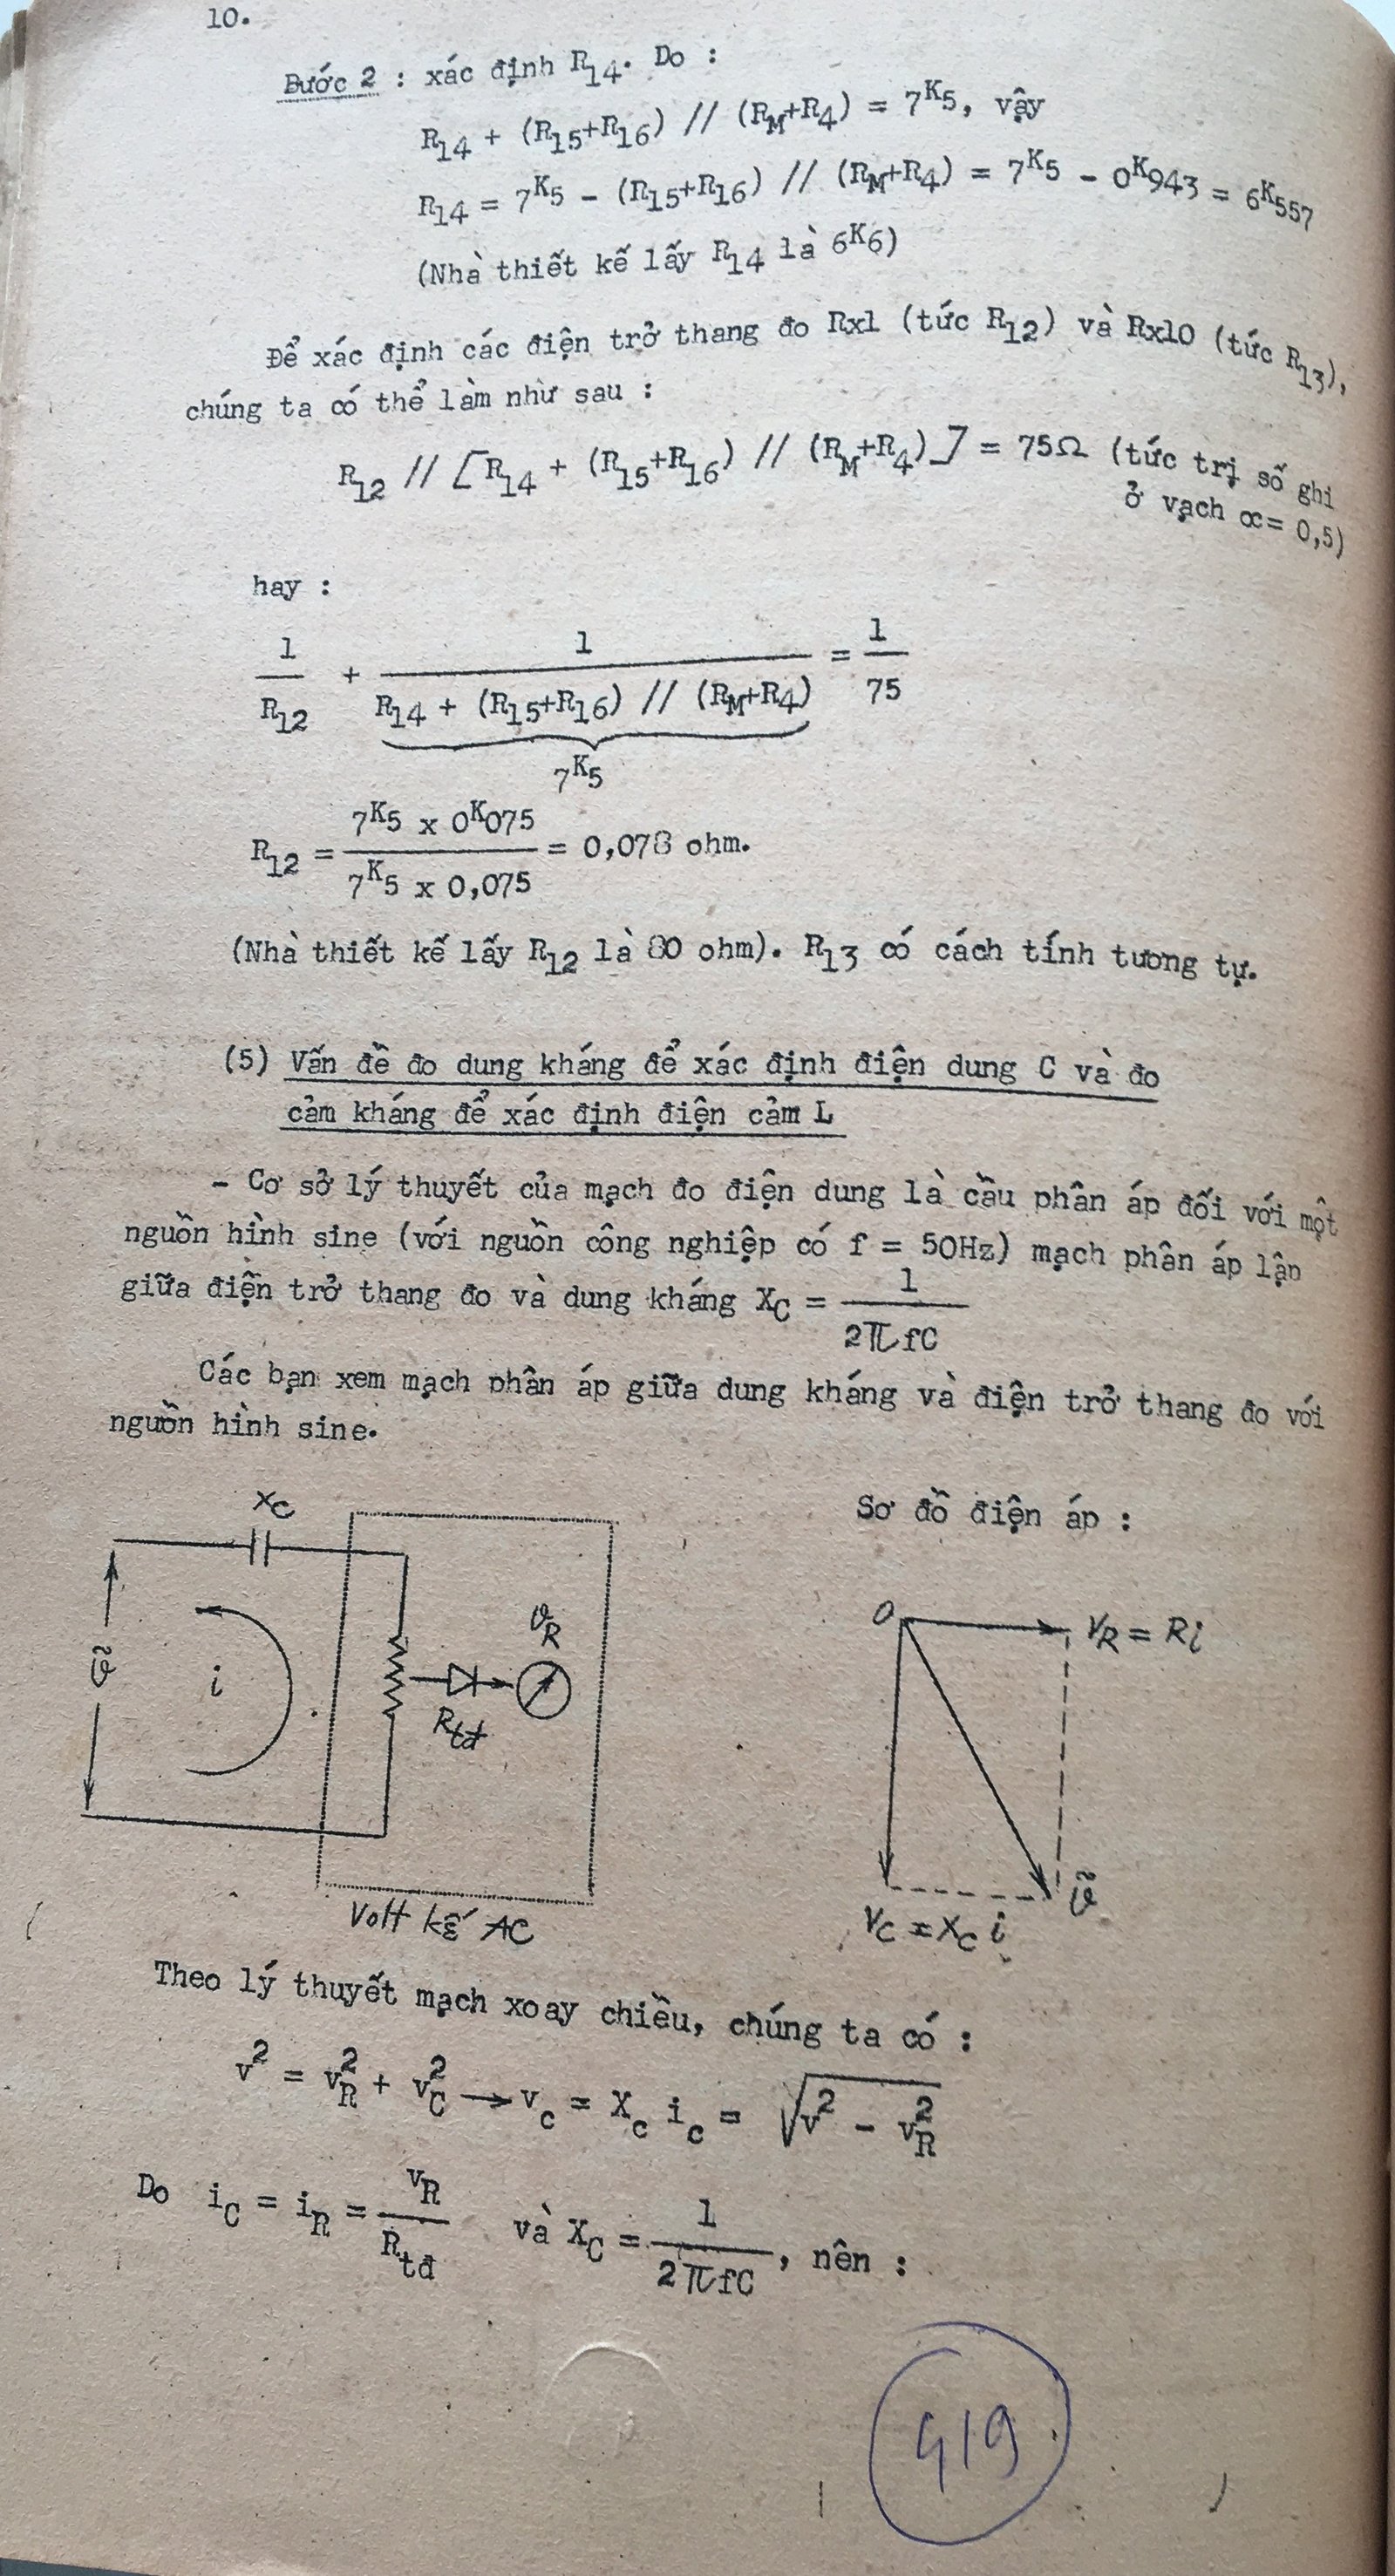 10.
Bước 2 : xác định R14. Do :
R14 + (R15+R16) // (RM+R4) = 7K5, vậy
R14 = 7K5 - (R15+R16) // (RM+R4) = 7K5 - 0K943 = 6K557
(Nhà thiết kế lấy R14 là 6K6)
Để xác định các điện trở thang đo Rx1 (tức R12) và Rx10 (tức R13),
chúng ta có thể làm như sau :
R12 // [R14 + (R15+R16) // (RM+R4)] = 75Ω (tức trị số ghi
ở vạch α= 0,5)
hay :
1/R12 + 1/(R14 + (R15+R16) // (RM+R4)) = 1/75
7K5
R12 = (7K5 x 0K075)/(7K5 x 0,075) = 0,078 ohm.
(Nhà thiết kế lấy R12 là 80 ohm). R13 có cách tính tương tự.
(5) Vấn đề đo dung kháng để xác định điện dung C và đo
cảm kháng để xác định điện cảm L
- Cơ sở lý thuyết của mạch đo điện dung là cầu phân áp đối với một
nguồn hình sine (với nguồn công nghiệp có f = 50Hz) mạch phân áp lận
giữa điện trở thang đo và dung kháng XC = 1/(2πfC)
Các bạn xem mạch phân áp giữa dung kháng và điện trở thang đo với
nguồn hình sine.
Sơ đồ điện áp :
XC
ṽ
i
vR
Rtđ
Volt kế AC
O
VR = Ri
ṽ
VC = XC i
Theo lý thuyết mạch xoay chiều, chúng ta có :
v² = vR² + vC² → vc = Xc ic = √(v² - vR²)
Do iC = iR = vR/Rtđ và XC = 1/(2πfC), nên :
419